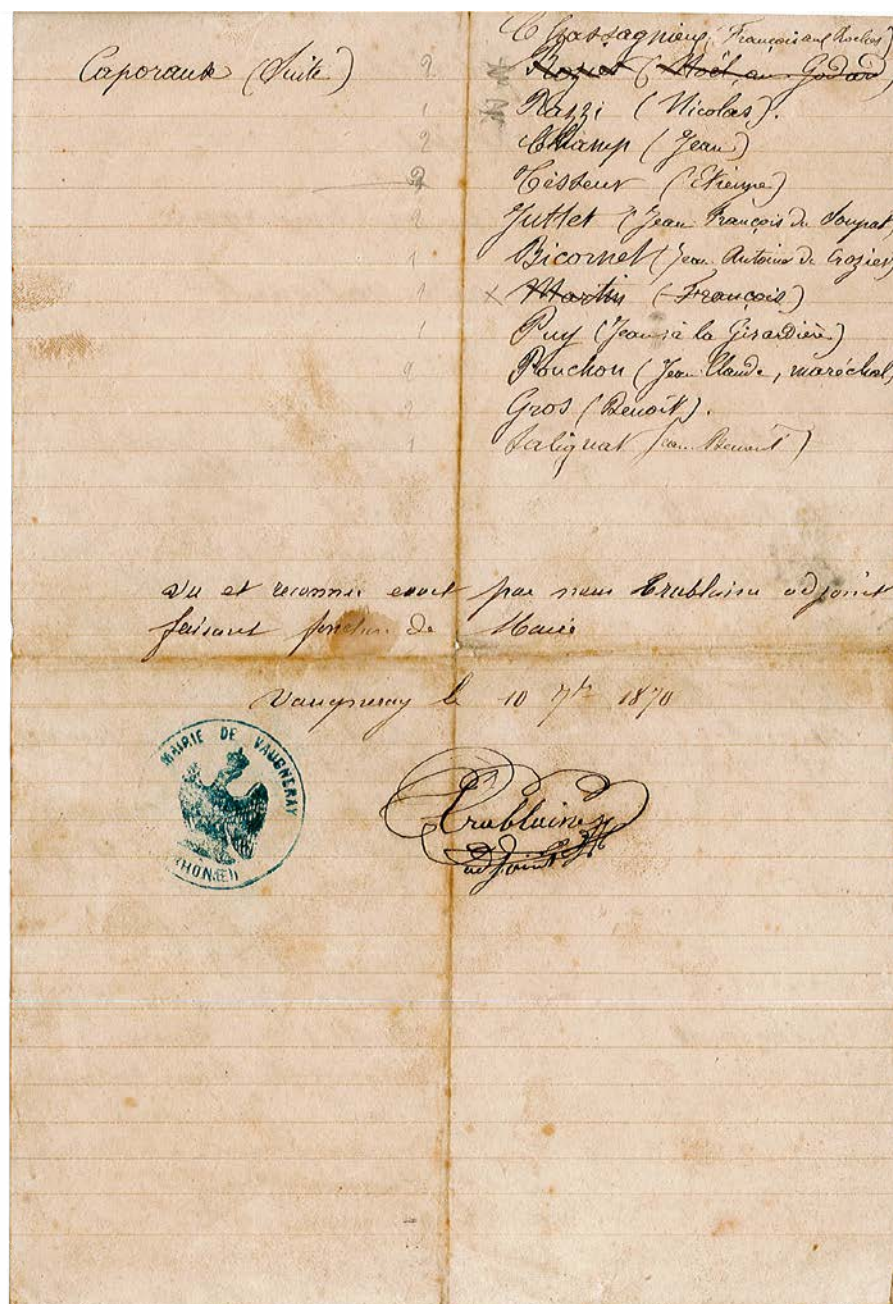 Chassagnieux (François aux Roches)
Caporaux (Suite) 2 Rozier (Noël, au Godard)
1 Razzi (Nicolas).
2 Champ (Jean)
2 Tisseur (Etienne)
2 Juttet (Jean François du Soupat)
1 Bicornet (Jean Antoine de Crozier)
1 x Martin (François)
1 Puy (Jean à la Girardière)
2 Ponchon (Jean Claude, maréchal)
2 Gros (Benoît).
1 Salignat Jean Benoit)
Vu et reconnu exact par nous Trublaine adjoint
faisant fonction de Maire
Vaugneray le 10 7bre 1870
MAIRIE DE VAUGNERAY
(RHONE)
Trublaine
adjoint